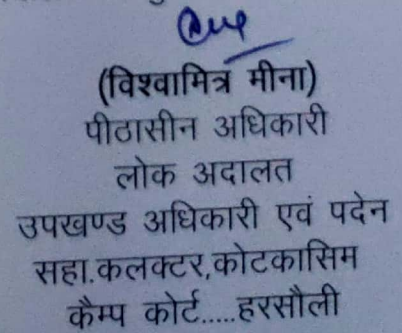 (विश्वामित्र मीना)
पीठासीन अधिकारी
लोक अदालत
उपखण्ड अधिकारी एवं पदेन
सहा.कलक्टर,कोटकासिम
कैम्प कोर्ट.....हरसौली